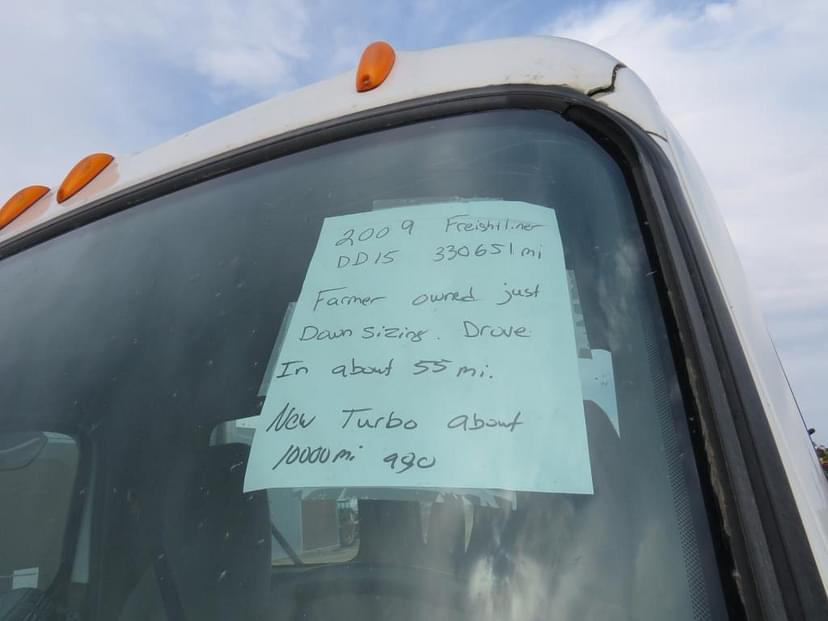 2009 Freightliner
DD15 330651 mi
Farmer owned just
Down Sizing. Drove
In about 55 mi.
New Turbo about
10000 mi ago